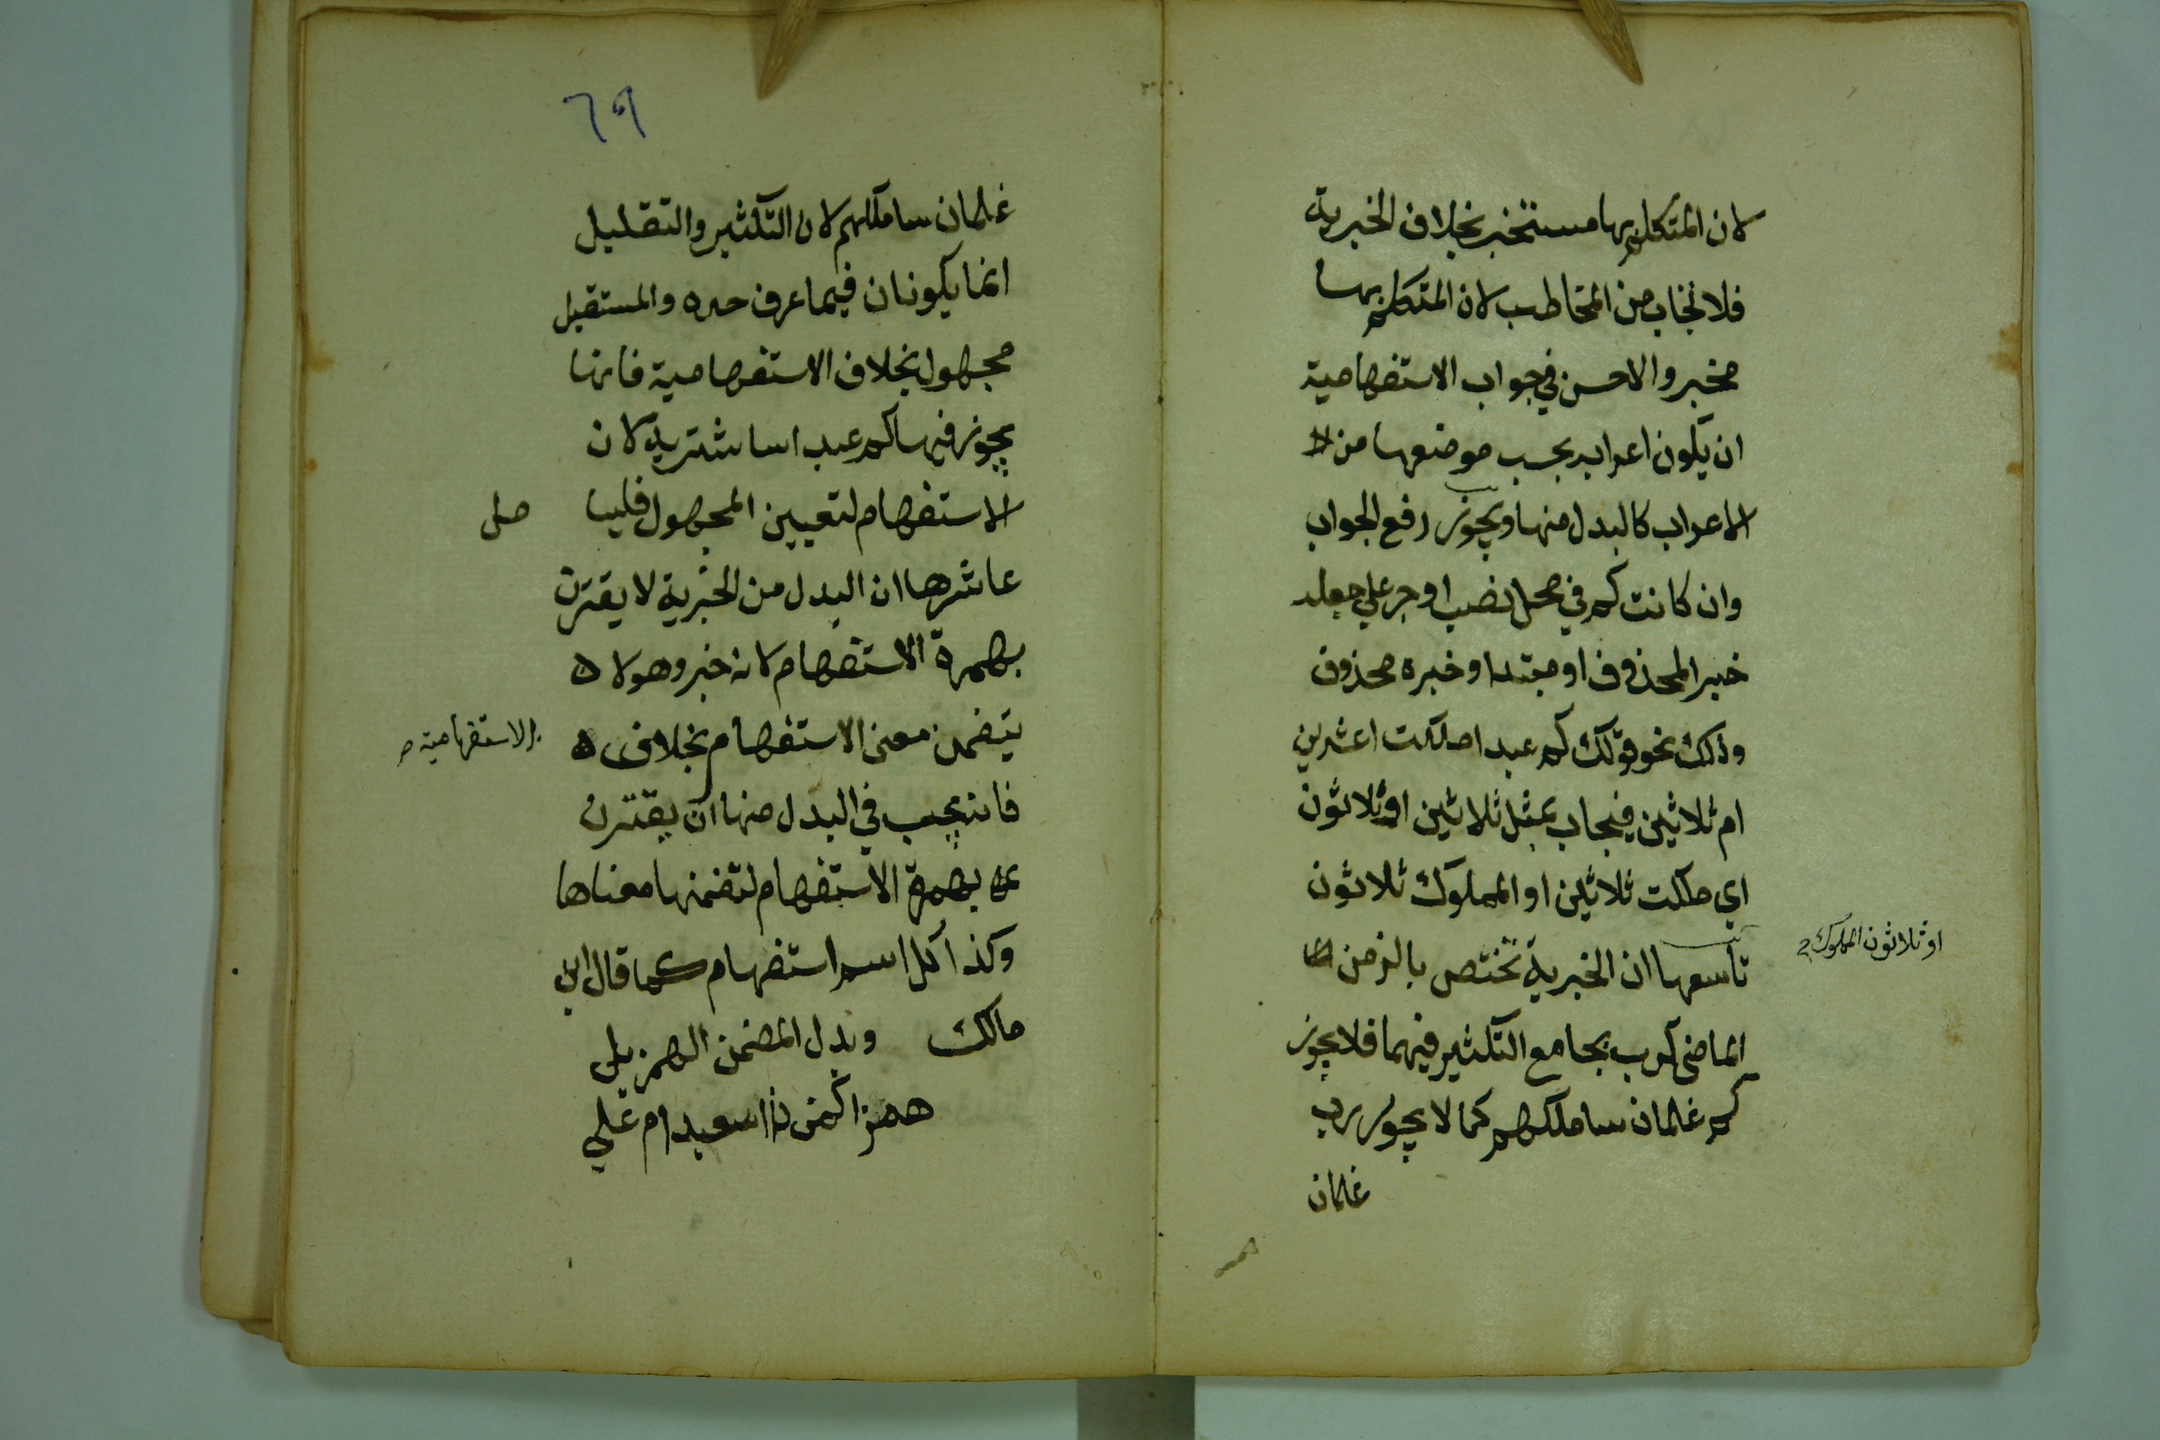 لان المتكلم بها مستخبر بخلاف الخبرية
فلا تجاب من المخاطب لان المتكلم بها
مخبر والاحسن في جواب الاستفهامية
ان يكون اعرابه بحسب موضعها من
الاعراب كالبدل منها ويجوز رفع الجواب
وان كانت كم في محل نصب او جر على جعله
خبر المحذوف او مبتدا وخبره محذوف
وذلك نحو قولك كم عبدا ملكت اعشرين
ام ثلاثين فيجاب بمثل ثلاثين او ثلاثون
اي ملكت ثلاثين او المملوك ثلاثون
او ثلاثون المملوك
تاسعها ان الخبرية تختص بالزمن
الماضي كرب بجامع التكثير فيهما فلا يجوز
كم غلمان ساملكهم كما لا يجوز رب
غلمان
٦٩
غلمان ساملكهم لان التكثير والتقليل
انما يكونان فيما عرف حده والمستقبل
مجهول بخلاف الاستفهامية فانها
يجوز فيها كم عبدا ساشتريه لان
الاستفهام لتعيين المجهول فليسا
عاشرها ان البدل من الخبرية لا يقترن
بهمزة الاستفهام لانه خبر وهو لا
يتضمن معنى الاستفهام بخلاف
الاستفهامية
فانه يجب في البدل منها ان يقترن
بهمزة الاستفهام لتضمنها معناها
وكذا كل اسم استفهام كما قال ابن
مالك وبدل المضمن الهمز يلي
همزا كمن ذا اسعيد ام علي